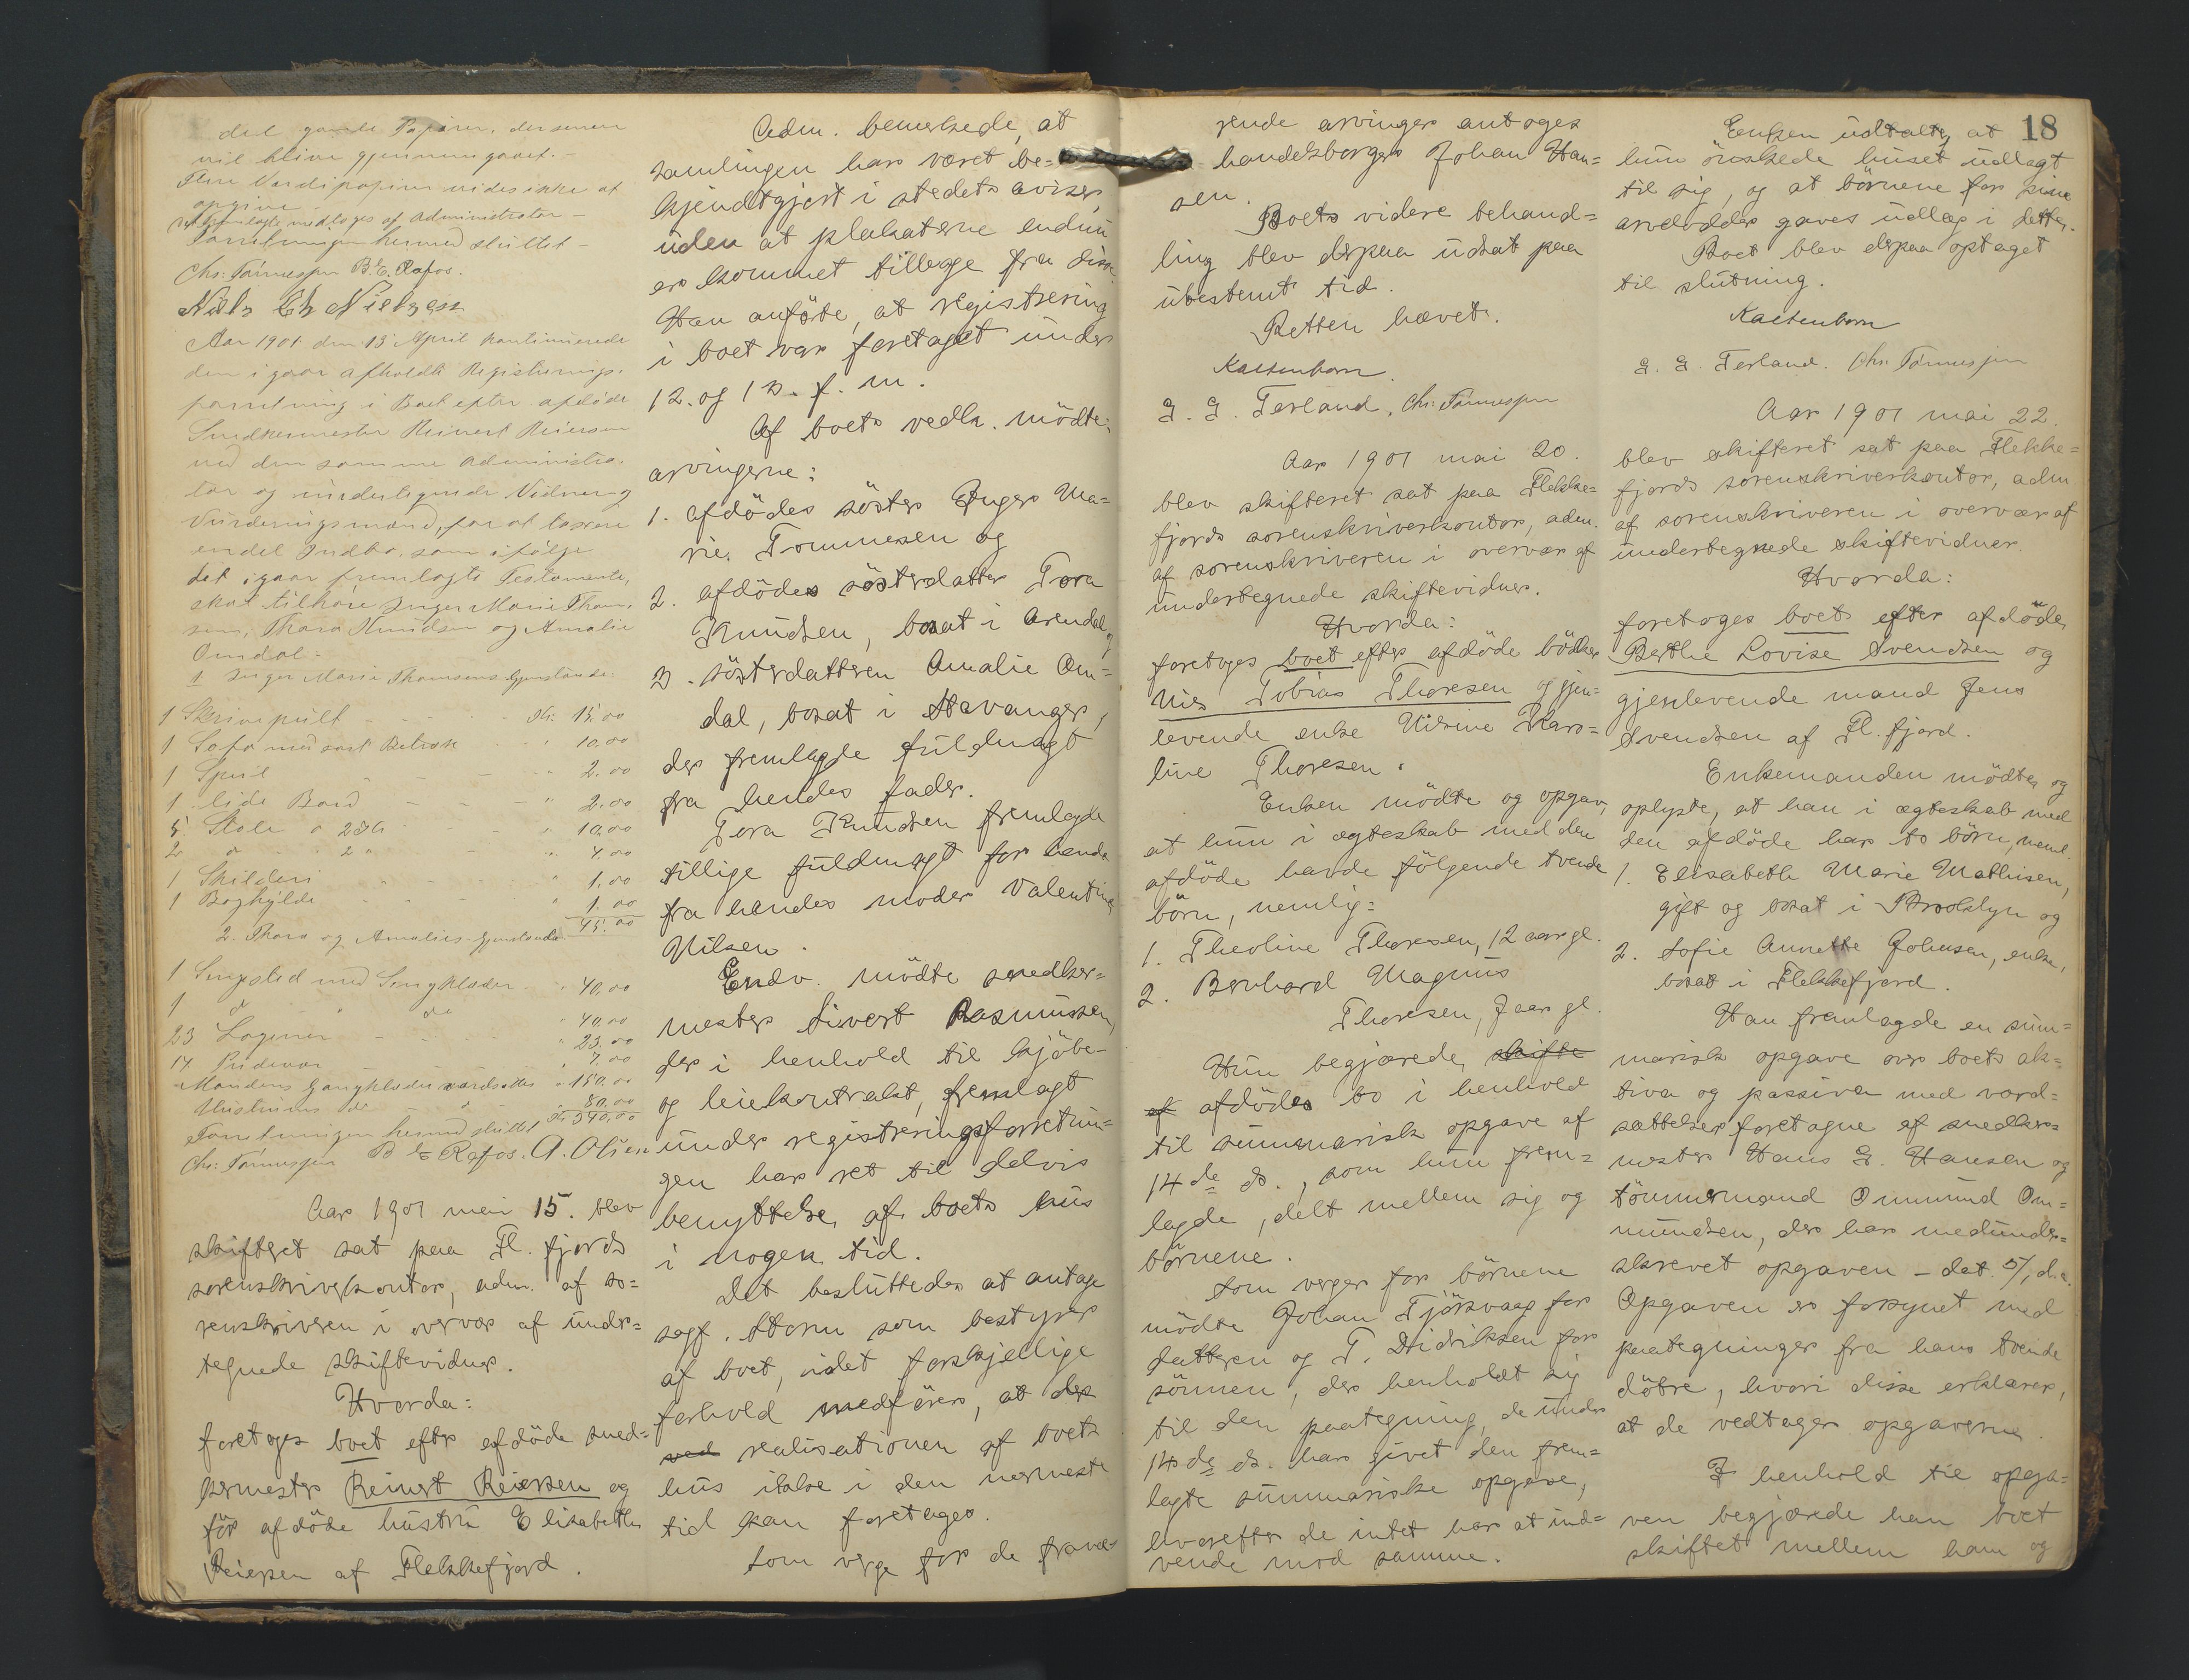 del gamle Papirer, der senere
vil blive gjennemgaaet.-
Flere Værdipapirer vides ikke at
opgive
medtoges af Administrator-
Forretningen hermed sluttet-
Chr. Tönnessen B. E. Rafos.
Niels Ch Nielsen
Aar 1901 den 13 April kontinuerede
den igaar afholdte Registrerings-
forretning i Boet efter afdöde
Snedkermester Reinert Reiersen
ved den samme Administra-
tor og undertegnede Vidner og
Vurderingsmænd, for at taxere
endel Indbo, som ifölge
det igaar fremlagte Testamente,
skal tilhöre Inger Marie Thom-
sen, Thora Knudsen og Amalie
Omdal-
1 Inger Marie Thomsens Gjenstande:
1 Skrivepult - - - Kr. 15.00
1 Sofa med sort Betræk - " 10.00
1 Speil - - - " 2.00
1 lide Bord - - - " 2.00
5 Stole a 2 Kr - - " 10.00
2 do " 2 " - - " 4.00
1 Skilderi - - - " 1.00
1 Boghylde - - " 1.00
45.00
2. Thora og Amalies Gjenstande
1 Sengsted med Sengklæder - " 40,00
1 do " do " 40,00
23 Lagener - - - " 23.00
14 Pudevar - - " 7.00
Mandens Gangklæder værdsattes " 150.00
Hustruens do do " 80.00
Forretningen hermed sluttet Kr 340,00
Chr. Tönnessen B E Rafos. A. Olsen
Aar 1901 mai 15. blev
skifteret sat paa Fl. fjords
sorenskriverkontor, adm. af so=
renskriveren i overvær af under=
tegnede skiftevidner.
Hvorda:
foretoges boet efter afdöde sned=
kermester Reinert Reiersen og
för afdöde hustru Elisabeth
Reiersen af Flekkefjord.
Adm. bemerkede, at
samlingen har været be=
kjendtgjort i stedets aviser,
uden at plakaterne endnu
er kommet tilbage fra disse
Han anförte, at registrering
i boet var foretaget under
12. og 13. f. m.
Af boets vedk. mödte:
arvingerne:
1. afdödes söster Inger Ma=
rie Tommesen og
2. afdödes sösterdatter Tora
Knudsen, bosat i Arendal og
3. sösterdatteren Amalie Om=
dal, bosat i Stavanger,
der fremlagde fuldmagt
fra hendes fader.
Tora Knudsen fremlagde
tillige fuldmagt for hende
fra hendes moder Valentine
Nilsen.
Endv. mödte snedker=
mester Sivert Rasmussen,
der i henhold til kjöbe-
og leiekontrakt, fremlagt
under registreringsforretnin=
gen har ret til delvis
benyttelse af boets hus
i nogen tid.
Det besluttedes at antage
sagf. Storm som bestyrer
af boet, idet forskjellige
forhold medförer, at der
ved realisationen af boets
hus ikke i den nærmeste
tid kan foretages.
Som verge for de fravæ=
rende arvinger antoges
handelsborger Johan Han=
sen.
Boets videre behand=
ling blev derpaa udsat paa
ubestemt tid.
Retten hævet.
Kaltenborn
G. G. Tesland, Chr. Tönnessen
Aar 1901 mai 20.
blev skifteret sat paa Flekke=
fjords sorenskriverkontor, adm.
af sorenskriveren i overvær af
undertegnede skiftevidner.
Hvorda:
foretoges boet efter afdöde bödker
Nils Tobias Thoresen og gjen=
levende enke Nilsine Karo=
line Thoresen.
Enken mödte og opgav,
at hun i ægteskab med den
afdöde havde fölgende tvende
börn, nemlig:
1. Theoline Thoresen, 12 aar gl.
2. Bernhard Magnus
Thoresen, 7 aar gl.
Hun begjærede skifte
af afdödes bo i henhold
til summarisk opgave af
14de ds., som hun frem=
lagde, delt mellem sig og
börnene.
Som verger for börnene
mödte Johan Tjörsvaag for
datteren og T. Didriksen for
sönnen, der henholdt sig
til den paategning, de under
14de ds. har givet den frem=
lagte summariske opgave,
hvorefter de intet har at ind=
vende mod samme.
18
Enken udtalte, at
hun önskede huset udlagt
til sig, og at börnene for sine
arvelodder gaves udlæg i dette.
Boet blev derpaa optaget
til slutning.
Kaltenborn
G. G. Tesland. Chr. Tönnessen
Aar 1901 mai 22.
blev skifteret sat paa Flekke=
fjords sorenskriverkontor, adm
af sorenskriveren i overvær af
undertegnede skiftevidner.
Hvorda:
foretoges boet efter afdöde
Berthe Lovise Svendsen og
gjenlevende mand Jens
Svendsen af Fl. fjord.
Enkemanden mödte og
oplyste, at han i ægteskab med
den afdöde har to börn, neml.
1. Elisabeth Marie Mathisen,
gift og bosat i Brooklyn og
2. Sofie Annette Johnsen, enke,
bosat i Flekkefjord.
Han fremlagde en sum=
marisk opgave over boets ak=
tiva og passiva med værd=
sættelser foretagne af snedker=
mester Hans G. Hansen og
tömmermand Ommund Om=
mundsen, der har medunder=
skrevet opgaven - dat. 5/, d. a.
Opgaven er forsynet med
paategninger fra hans tvende
döbre, hvori disse erklærer,
at de vedtager opgaverne.
I henhold til opga=
ven begjærede han boet
skiftet mellem ham og